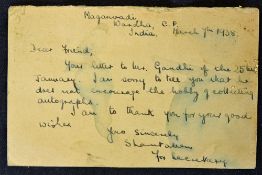 Maganvadi,
Wardha, C.P.
India. March 7th 1938.
Dear Friend,
Your letter to Mr. Gandhi of the 25th
January. I am sorry to tell you that he
does not encourage the hobby of collecting
autographs.
I am to thank you for your good
wishes.
Yrs sincerely
for Secretary